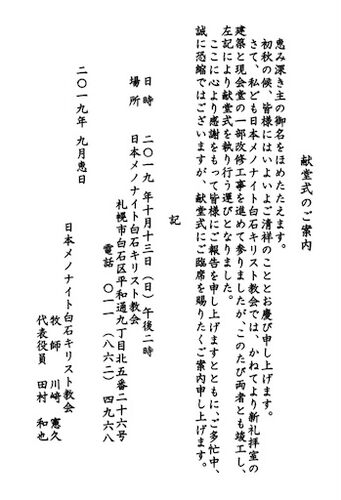 献堂式のご案内
恵み深き主の御名をほめたたえます。
初秋の候、皆様にはいよいよご清祥のこととお慶び申し上げます。
さて、私ども日本メノナイト白石キリスト教会では、かねてより新礼拝室の
建築と現会堂の一部改修工事を進めて参りましたが、このたび両者とも竣工し、
左記により献堂式を執り行う運びとなりました。
ここに心より感謝をもって皆様にご報告を申し上げますとともに、ご多忙中、
誠に恐縮ではございますが、献堂式にご臨席を賜りたくご案内申し上げます。
記
日時 二〇一九年十月十三日(日)午後二時
場所 日本メノナイト白石キリスト教会
札幌市白石区平和通九丁目北五番二十六号
電話 〇一一(八六二)四九六八
二〇一九年 九月恵日
日本メノナイト白石キリスト教会
牧師 川﨑 憲久
代表役員 田村 和也